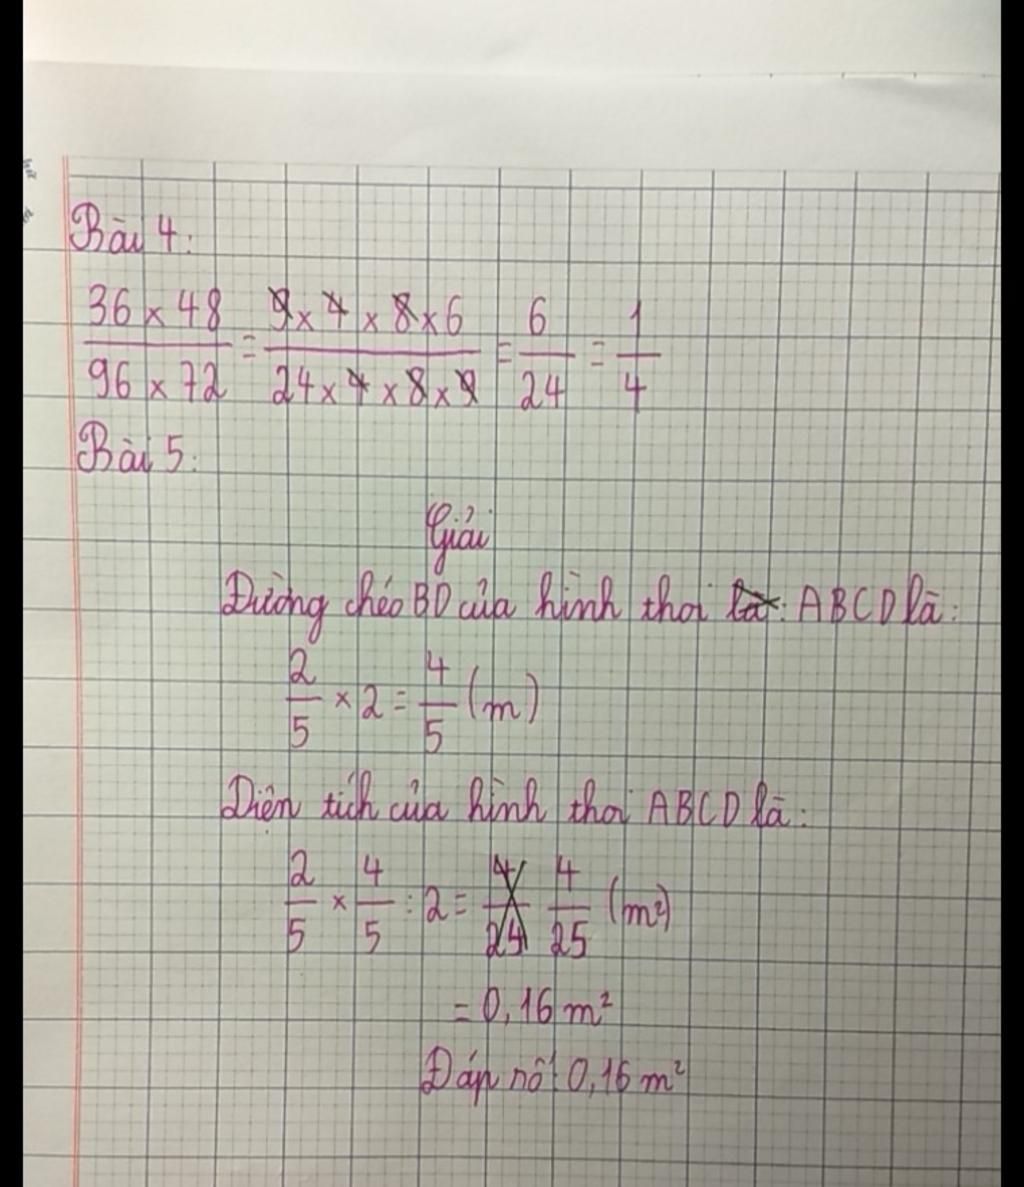 Bài 4:
36 x 48 / 96 x 72 = 9 x 4 x 8 x 6 / 24 x 4 x 8 x 9 = 6 / 24 = 1 / 4
Bài 5:
Giải
Đường chéo BD của hình thoi là: ABCD là:
2 / 5 x 2 = 4 / 5 (m)
Diện tích của hình thoi ABCD là:
2 / 5 x 4 / 5 : 2 = 4 / 24 4 / 25 (m²)
= 0,16 m²
Đáp số: 0,16 m²